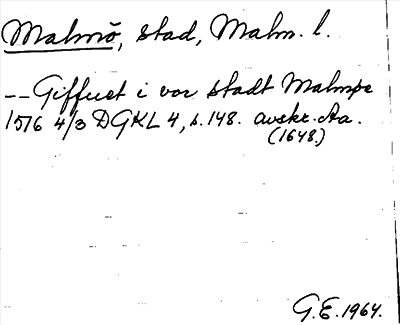 Malmö, stad, Malm. l.
-- Giffuet i vor stadt Malmpe
1516 4/3 DGKL 4, s. 148. avskr. Aa.
(1648.)
G.E. 1964.